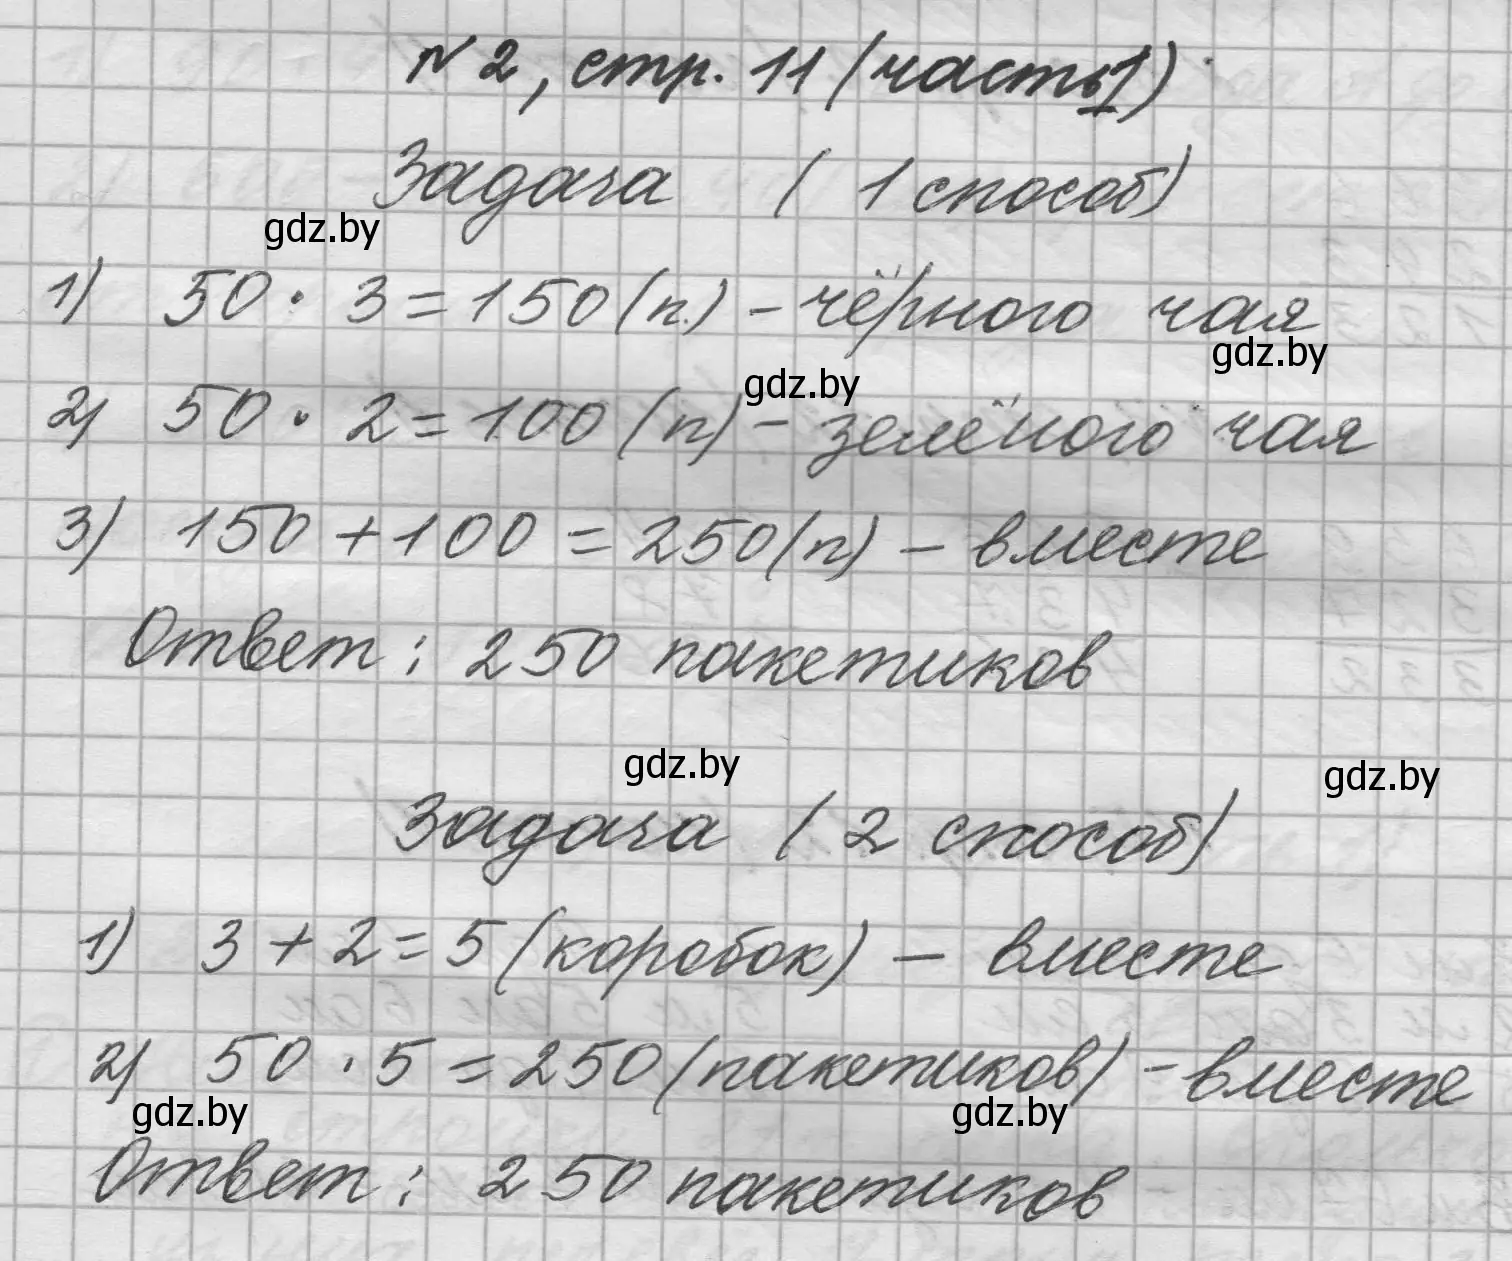 № 2, стр. 11 (часть 1)
Задача ( 1 способ)
gdz.by
1) 50 · 3 = 150 (п.) - чёрного чая
gdz.by
gdz.by
2) 50 · 2 = 100 (п) - зелёного чая
3) 150 + 100 = 250 (п) - вместе
Ответ: 250 пакетиков
gdz.by
gdz.by
Задача ( 2 способ)
1) 3 + 2 = 5 (коробок) - вместе
2) 50 · 5 = 250 (пакетиков) - вместе
gdz.by
gdz.by
Ответ: 250 пакетиков